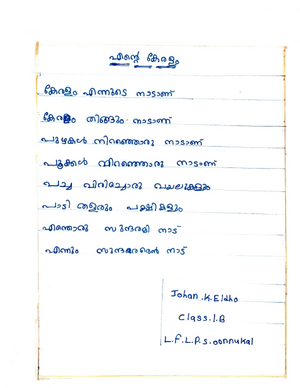 എന്റെ കേരളം
കേരളം എന്നുടെ നാടാണ്
കേരളം തിങ്ങും നാടാണ്
പുഴകൾ നിറഞ്ഞൊരു നാടാണ്
പൂക്കൾ വിറഞ്ഞൊരു നാടാണ്
പച്ച വിരിച്ചൊരു വയലുകളും
പാടി തളരും പക്ഷികളും
എന്തൊരു സുന്ദരമി നാട്
എന്നും സുന്ദരമെൻ നാട്
Johan .K. Eldho
Class.1.B
L.F.L.P.S. oonnukal